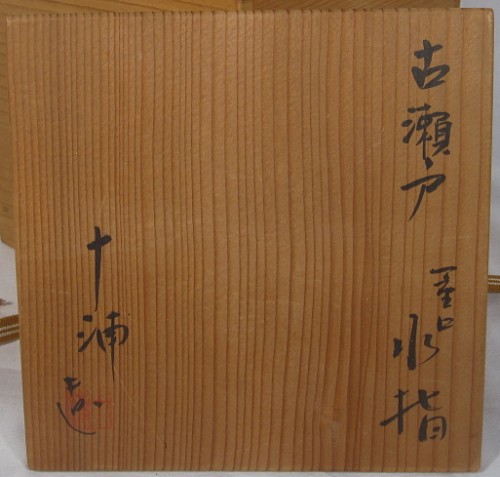 古瀬戸 一重口 水指
十浦 造